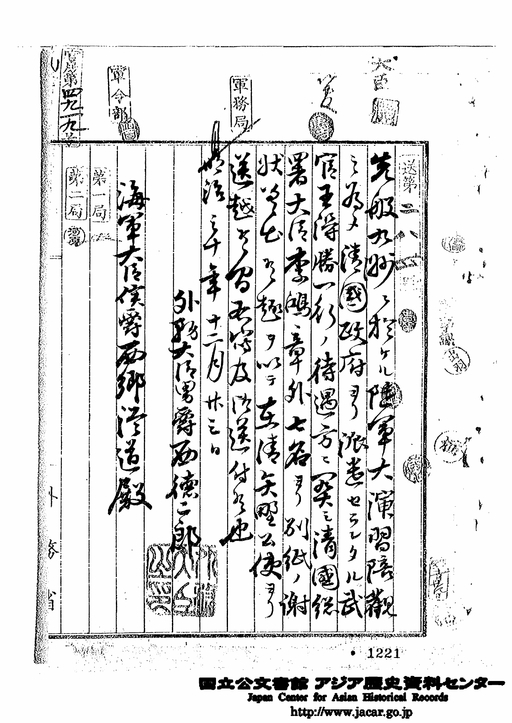 大臣
軍務局
軍令部
官房第四九一九号
送第二八
先般九州ニ於ケル陸軍大演習陪観
ノ為メ清國政府ヨリ派遣セラレタル武
官王得勝一行ノ待遇方ニ関シ清國総
署大臣李鴻章外七名ヨリ別紙ノ謝
状差出候趣ヲ以テ在清矢野公使ヨリ
送越候ニ付右写及御送付候也
明治三十年十二月廿三日
外務大臣男爵西徳二郎
海軍大臣侯爵西郷従道殿
第一局
第二局
外務省
1221
国立公文書館 アジア歴史資料センター
Japan Center for Asian Historical Records
http://www.jacar.go.jp